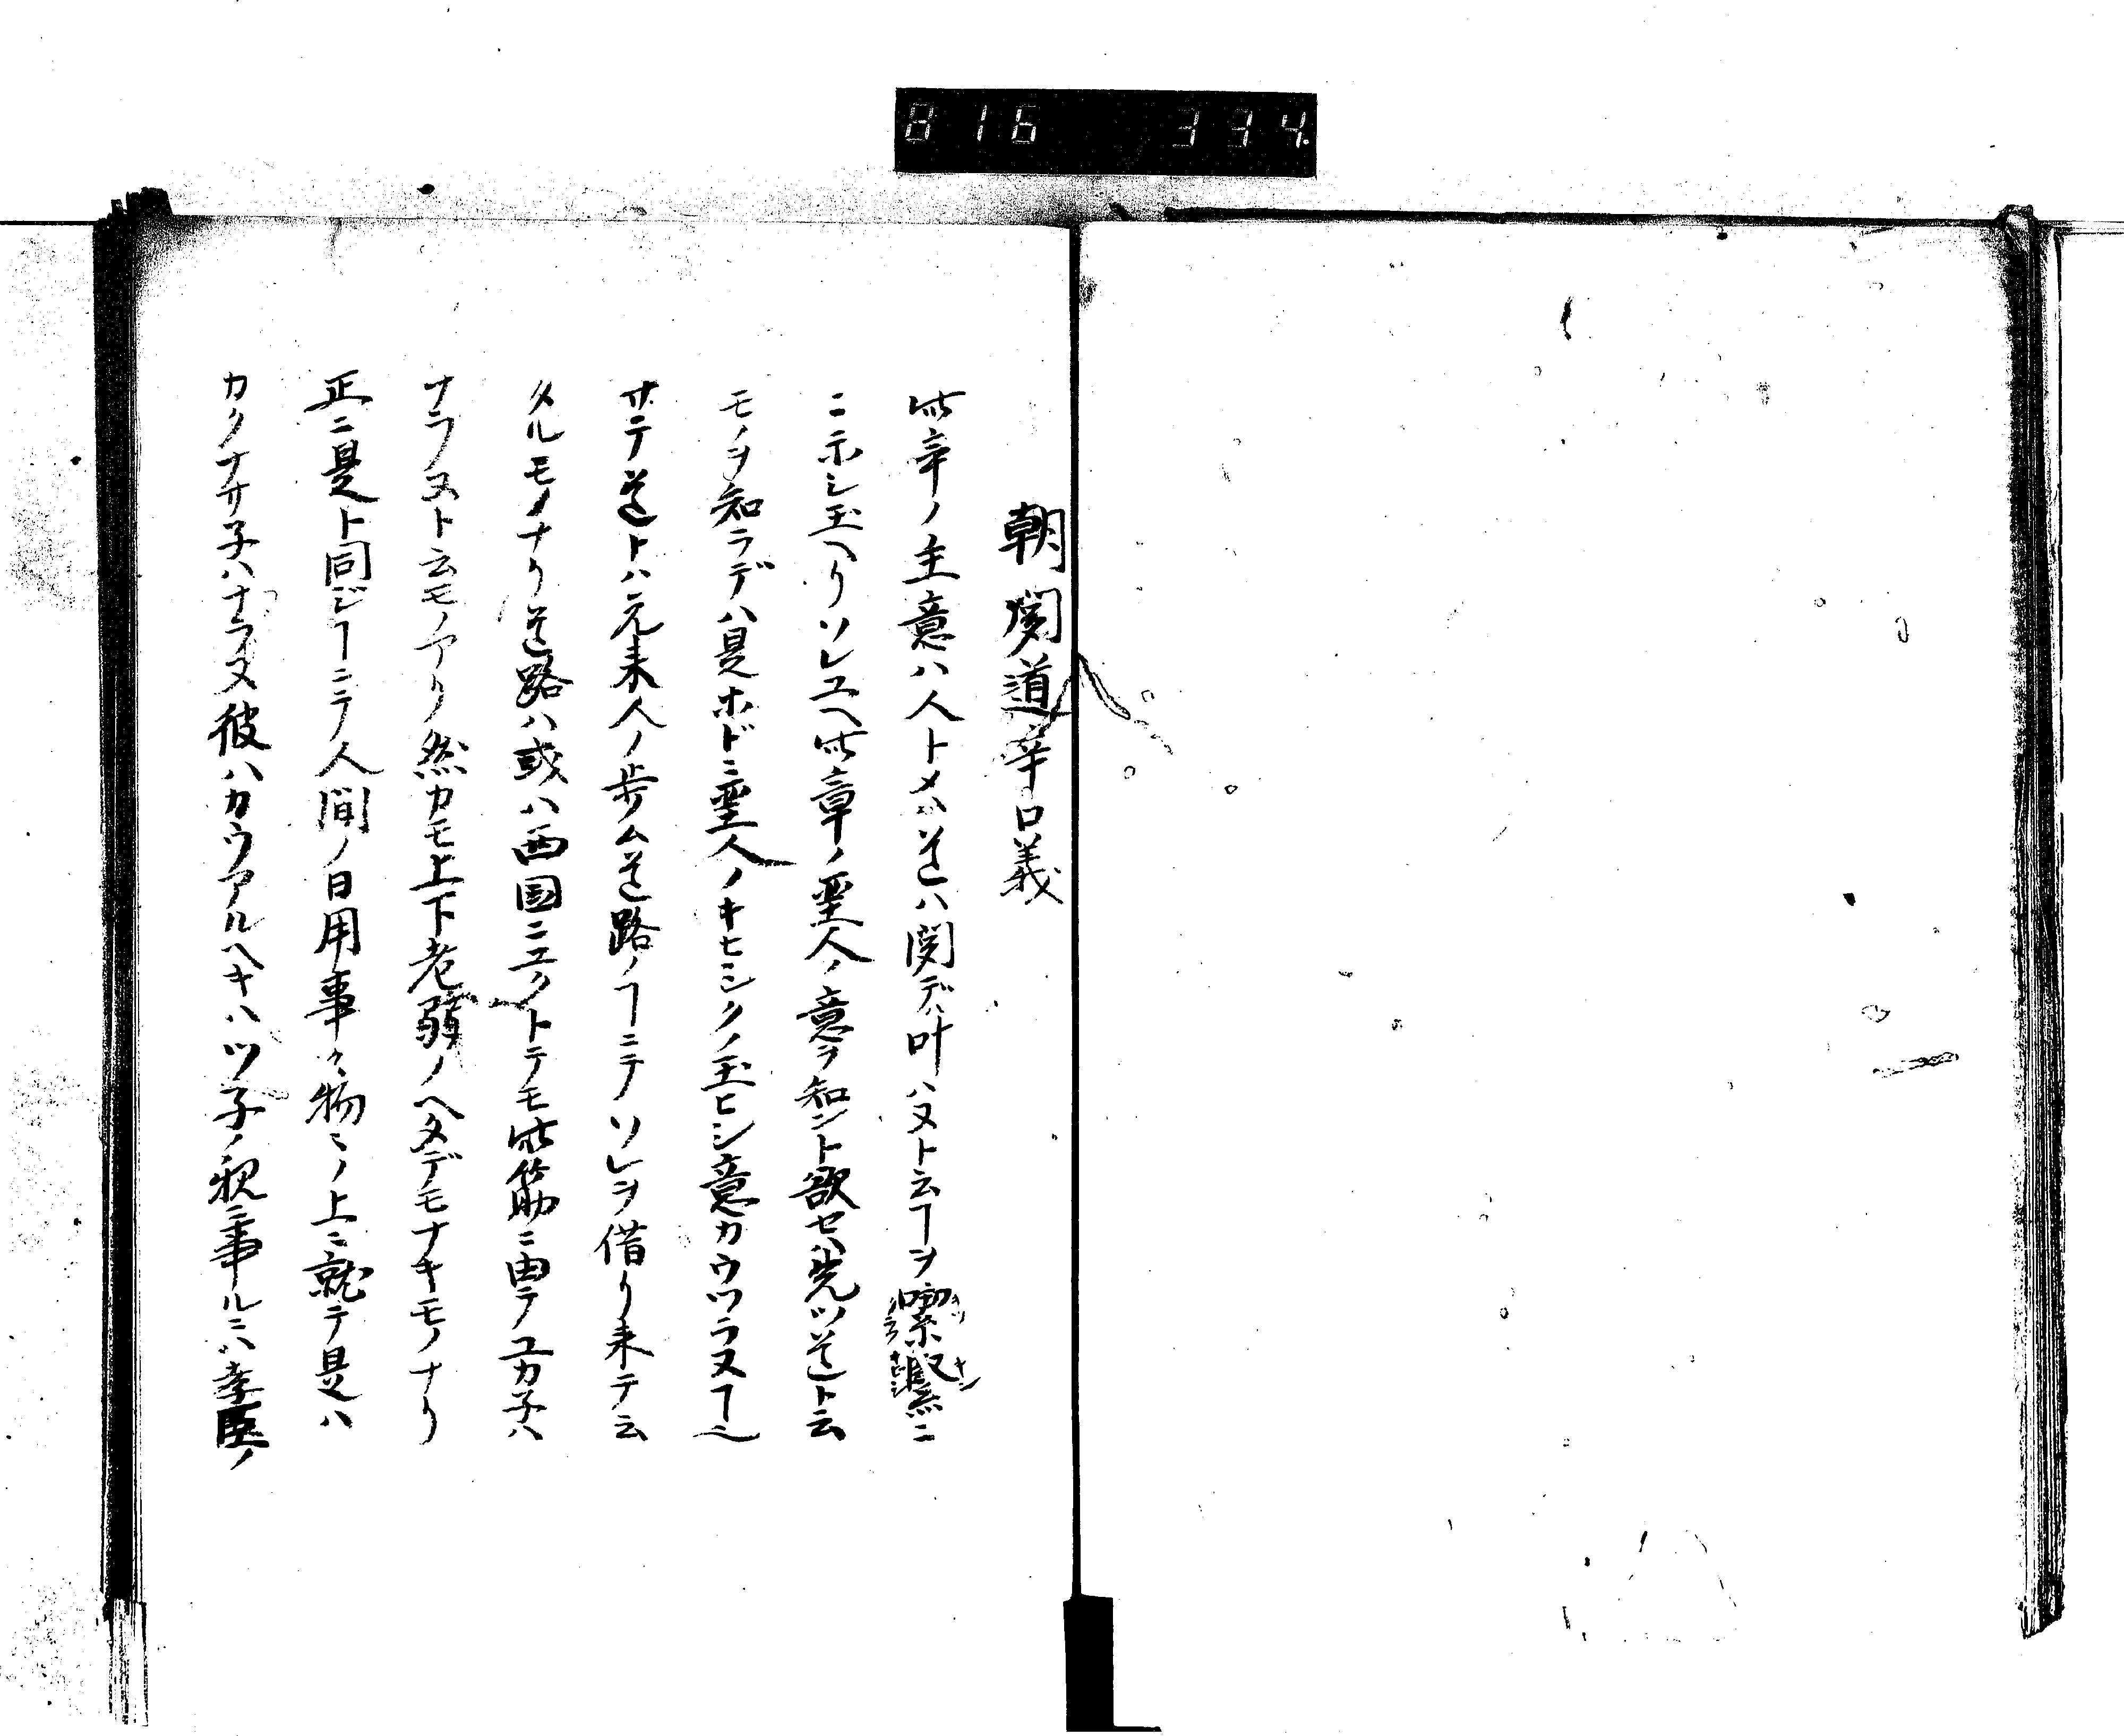 816 334
朝聞道章口義
此章ノ主意ハ人トメハ道ハ聞デハ叶ハヌト云ヿヲ喫緊ニ
ニ示シ玉ヘリソレユヘ此章ノ聖人ノ意ヲ知ント欲セハ先ツ道ト云
モノヲ知ラデハ是ホドニ聖人ノキビシクノ玉ヒシ意カウツラヌヿ也
サテ道トハ元来人ノ歩ム道路ノヿニテソレヲ借リ来テ云
タルモノナリ道路ハ或ハ西国ニユクトテモ此筋ニ由テユカ子ハ
ナラヌト云モノアリ然カモ上下老弱ノヘダテモナキモノナリ
正ニ是ト同ジヿニテ人間ノ日用事々物々ノ上ニ就テ是ハ
カクナサ子ハナラヌ彼ハカウアルヘキハツ子ノ親ニ事ルニハ孝臣ノ